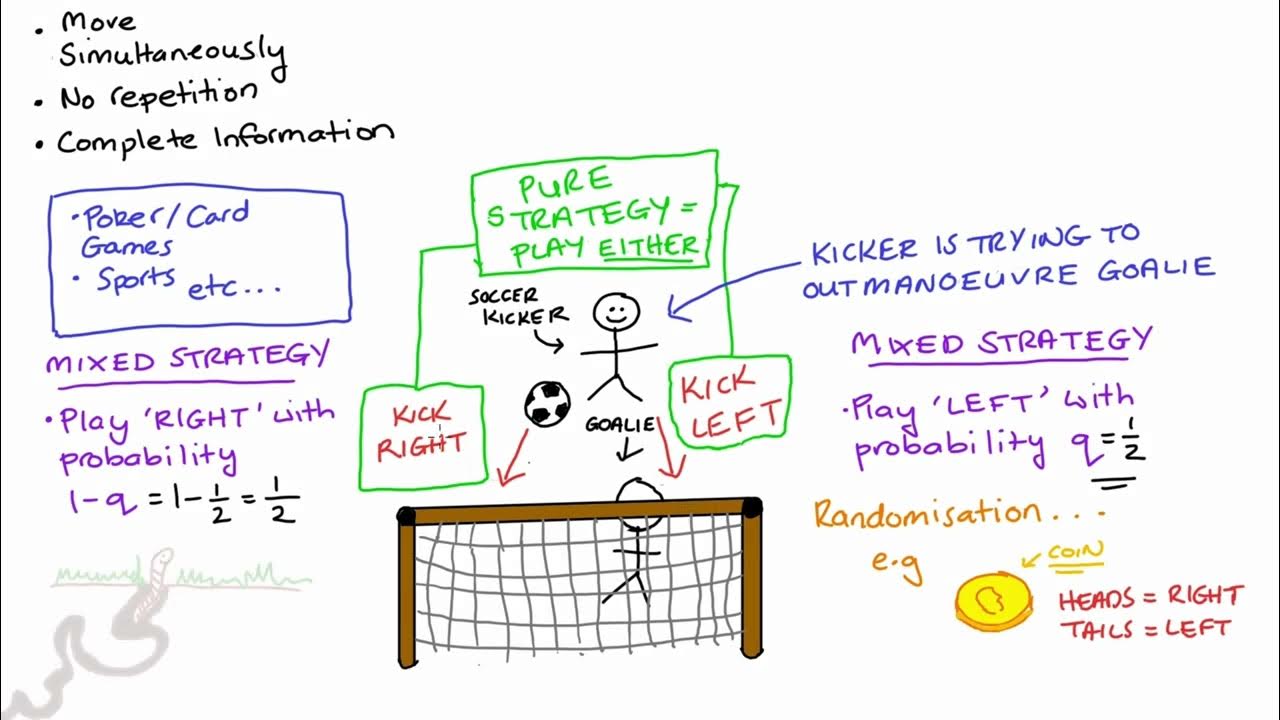 • Move
Simultaneously
• No repetition
• Complete Information
• Poker/Card
Games
• Sports etc...
MIXED STRATEGY
• Play 'RIGHT' with
probability
1-q = 1-1/2 = 1/2
PURE
STRATEGY =
PLAY EITHER
SOCCER
KICKER
KICK
RIGHT
GOALIE
KICK
LEFT
KICKER IS TRYING TO
OUTMANOEUVRE GOALIE
MIXED STRATEGY
• Play 'LEFT' with
probability q = 1/2
Randomisation...
e.g
COIN
HEADS = RIGHT
TAILS = LEFT